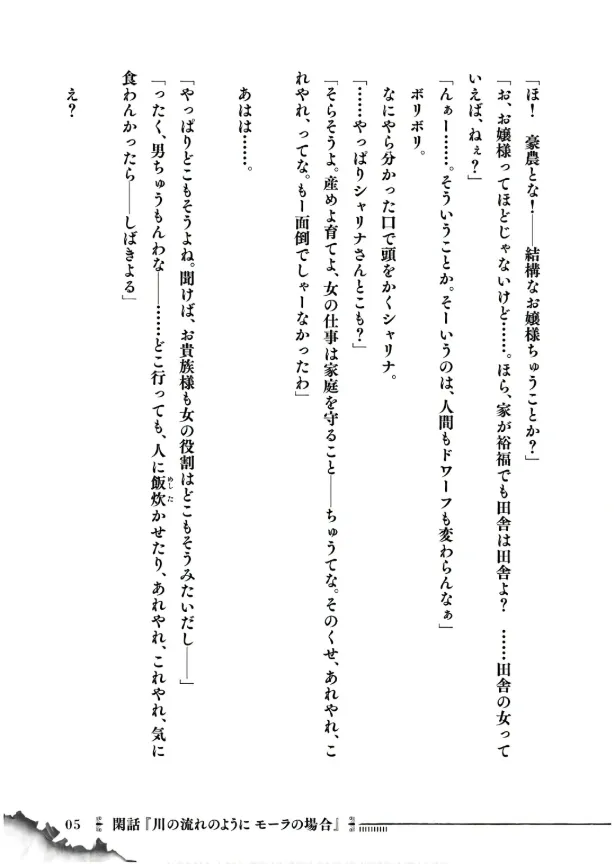 「ほ！　豪農とな！――結構なお嬢様ちゅうことか？」
「お、お嬢様ってほどじゃないけど……。ほら、家が裕福でも田舎は田舎よ？　……田舎の女って
いえば、ねぇ？」
「んぁー……。そういうことか。そーいうのは、人間もドワーフも変わらんなぁ」
ボリボリ。
なにやら分かった口で頭をかくシャリナ。
「……やっぱりシャリナさんとこも？」
「そらそうよ。産めよ育てよ、女の仕事は家庭を守ること――ちゅうてな。そのくせ、あれやれ、こ
れやれ、ってな。もー面倒でしゃーなかったわ」
あはは……。
「やっぱりどこもそうよね。聞けば、お貴族様も女の役割はどこもそうみたいだし――」
「ったく、男ちゅうもんわな――……どこ行っても、人に飯炊かせたり、あれやれ、これやれ、気に
食わんかったら――しばきよる」
え？
05 閑話『川の流れのように モーラの場合』